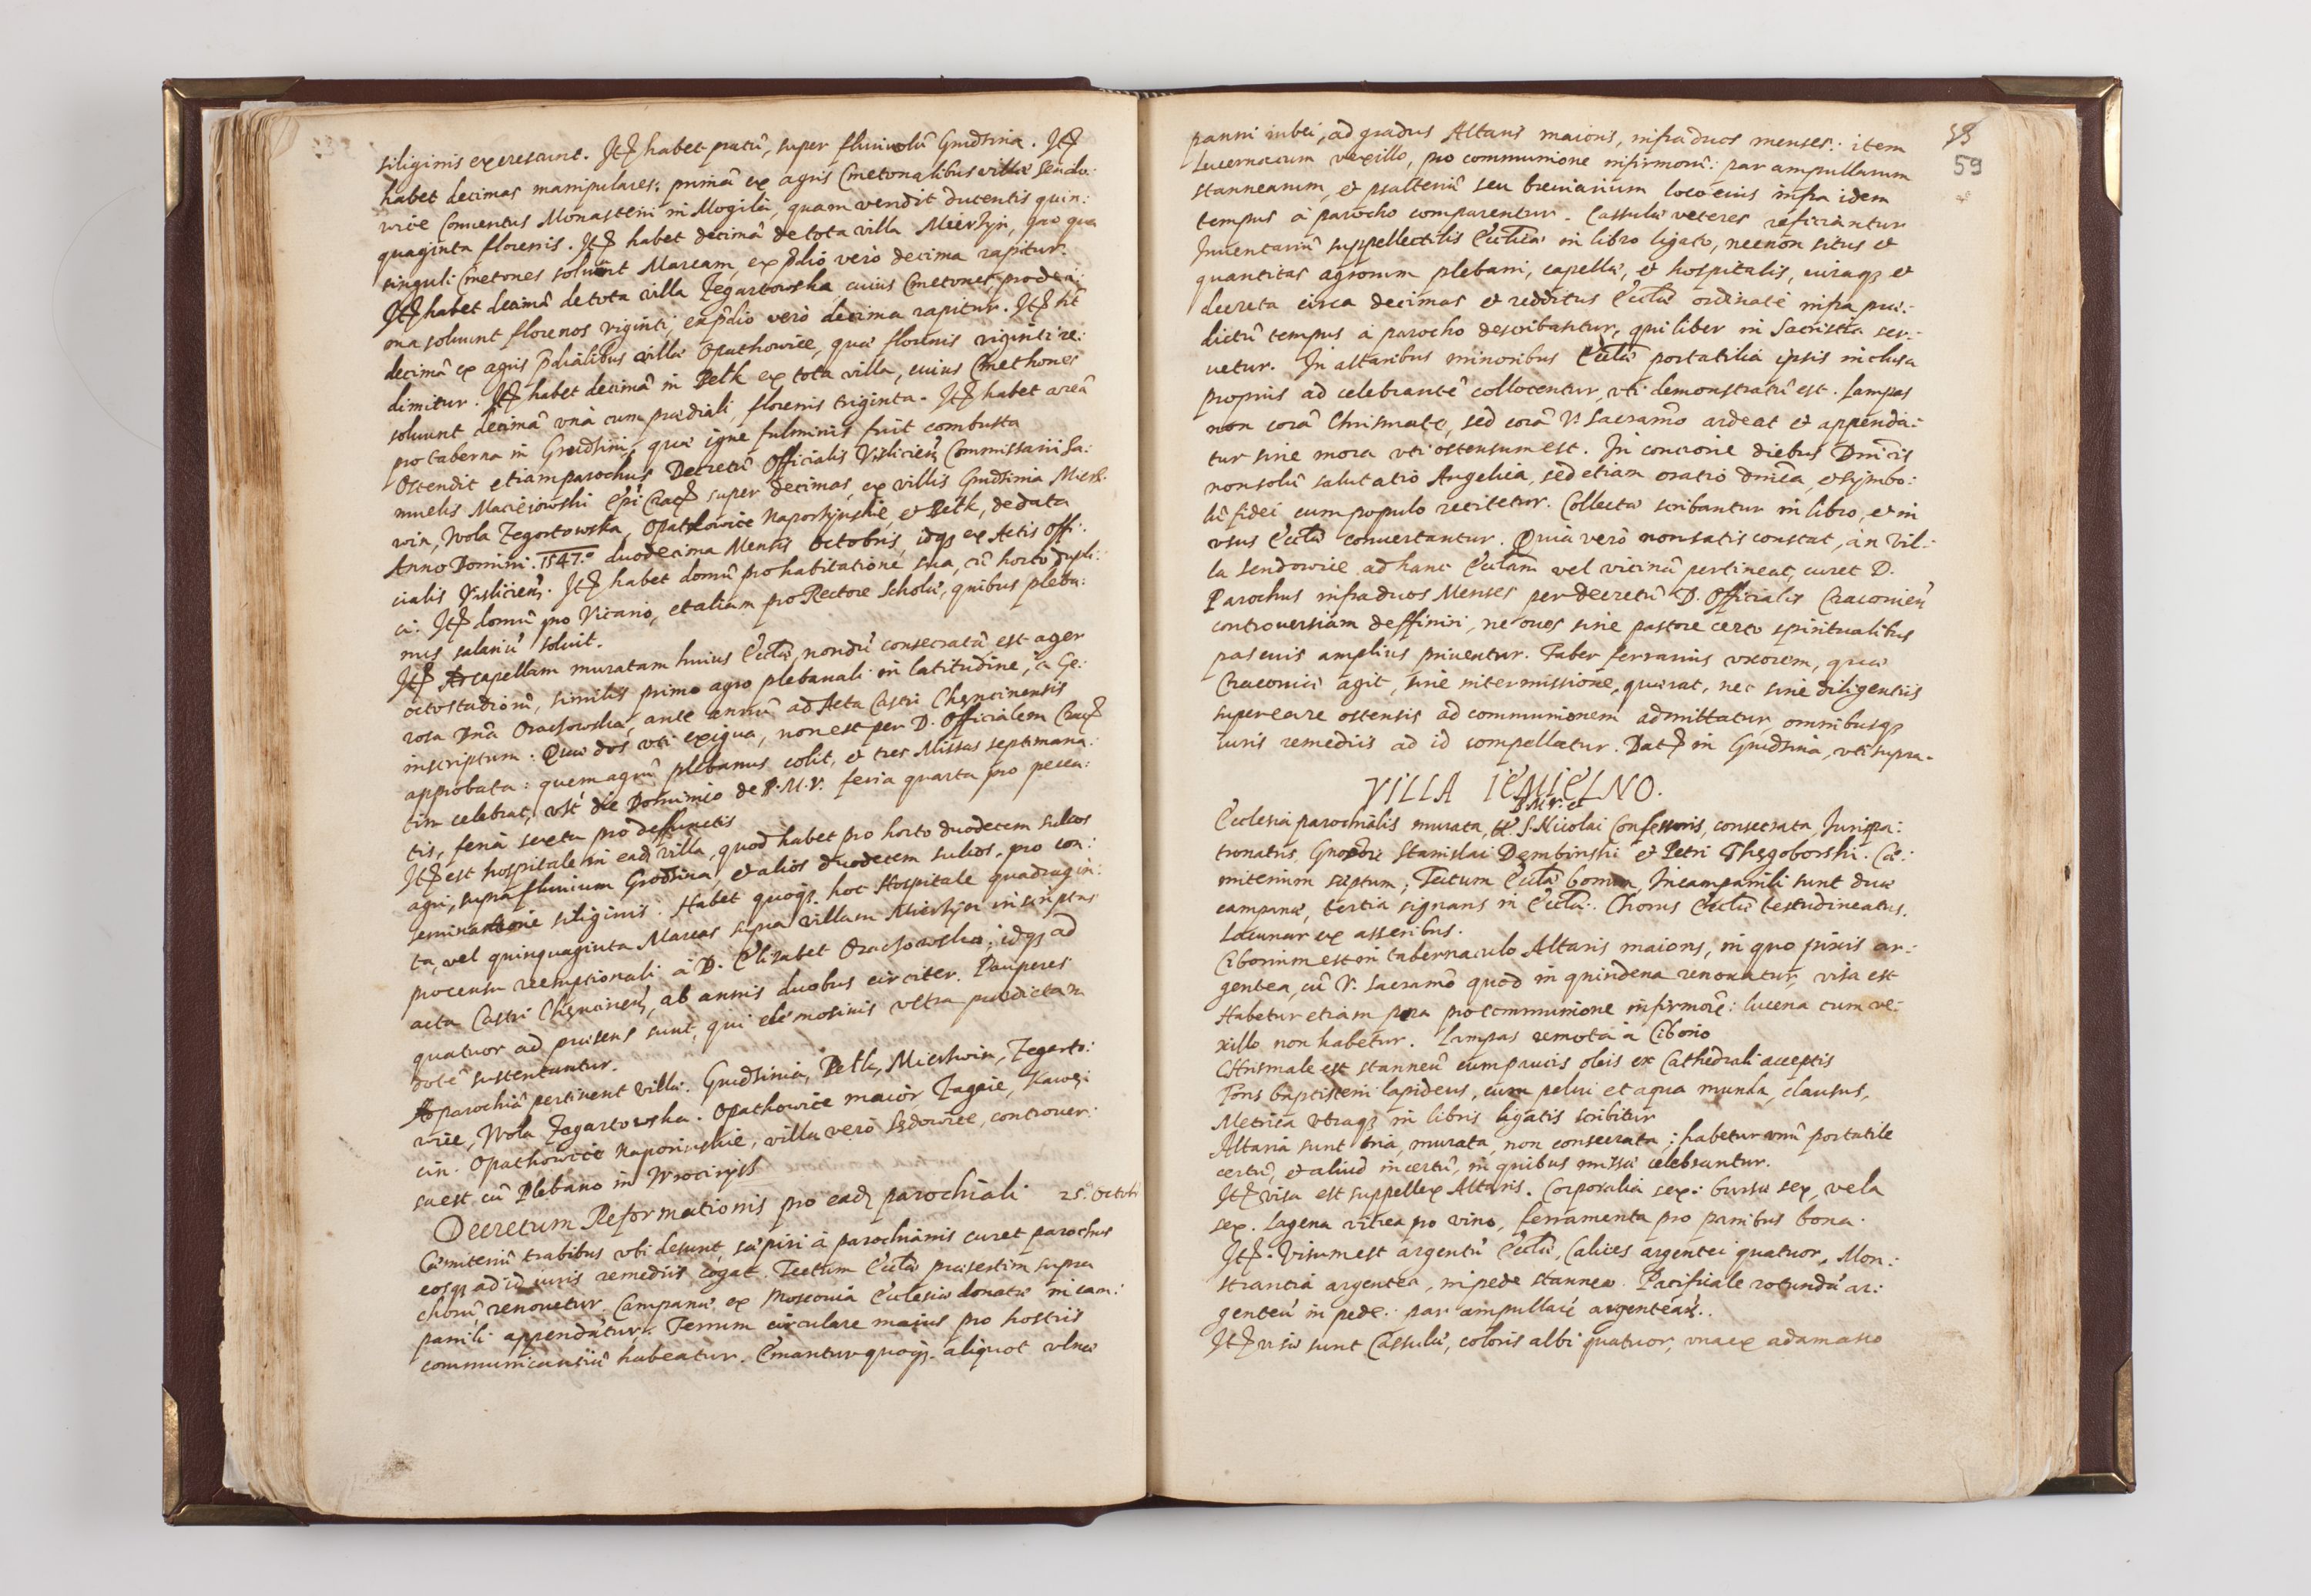 siliginis excrescunt. Itē habet pratū, super fluuiolū Gnidsina. Itē
habet decimas manipulares: primā ex agris Cmetonalibus villæ Sendo:
wice Conuentus Monasterii in Mogiła, quam vendit ducentis quin:
quaginta florenis. Itē habet decimā de tota villa Mierzyn, pro qua
singuli Cmetones soluunt Marcam, ex p̄dio verò decima rapitur.
Itē habet decimā de tota villa Zegartowska, cuius Cmetones pro deci:
ma soluunt florenos viginti, ex p̄dio verò decima rapitur. Itē ht̄
decimā ex agris p̄dialibus villæ Opathowice, quæ florenis viginti re:
dimitur. Itē habet decimā in Pełk ex tota villa, cuius Cmethones
soluunt decimā vnà cum prædiali, florenis triginta. Itē habet areā
pro taberna in Gnidsini, quæ igne fulminis fuit combusta
Ostendit etiam parochus Decretū Officialis Visliciens̄ Commissarii Sa:
muelis Macieiowski Epī Crac̄ super decimas, ex villis Gnidsinia Miers:
win, Wola Zegortowska, Opathowice Naporżynskie, et Pełk, de data
Anno Domini. 1547.º duodecima Mensis Octobris, idq3 ex Actis Offi:
cialis Visliciens̄. Itē habet domū pro habitatione sua, cū horto dupli:
ci. Itē domū pro Vicario, et aliam pro Rectore Scholæ, quibus pleba:
nus salariū soluit.
Itē Ar capellam muratam huius Eccl̄æ, nondū consecratā est ager
octo stadiorū, similis primo agro plebanali in latitudine, à Ge:
rosa Dnā Oraczowska, ante annū ad Acta Castri Chęncinensis
inscriptum. Quæ dos vti exigua, non est per D. Officialem Crac̄
approbata: quem agrū plebanus colit, et tres Missas septimana:
tim celebrat, vst̄ die Dominico de B. M. V. feria quarta pro pecca:
tis, feria sexta pro deffunctis
Itē est hospitale in ead̄ villa, quod habet pro horto duodecem sulcos
agri, supra fluuium Grodsina, et alios duodecem sulcos, pro con:
seminatione siliginis. Habet quoq3 hoc Hospitale quadragin:
ta, vel quinquaginta Marcas supra villam Mierżyn inscriptas
pro censu reemptionali à D. Elizabet Oraczowska, idq3 ad
acta Castri Chęnciens̄, ab annis duobus circiter. Pauperes
quatuor ad præsens sunt, qui elemosinis vltra prædictam
dotē sustentantur.
Ad parochiā pertinent villæ. Gnidsinia, Pełk, Mierswin, Zegarto:
wice, Wola Zagartowska. Opathowice maior Zagaie, Kawęci
cin. Opathowice Naporiuskie, villa verò Sędowice, controuer:
sa est cū Plebano in Wrociryss̄
Decretum Reformationis pro ead̄ parochiali 25ª Octob̄
Cœmiteriū trabibus vbi desunt, sæpiri à parochianis curet parochus
eosq3 ad id iuris remediis cogat. Tectum Eccl̄æ præsertim supra
chorū renouetur. Campanæ ex Moscouia Ecclesiæ donatæ in cam:
panili appendātur. Ferrum circulare maius pro hostiis
communicantiū habeatur. Emantur quoq3. aliquot vlnæ
58
59
panni rubei, ad gradus Altaris maioris, infra duos menses: item
Lucernarum vexillo, pro communione infirmorū: par ampullarum
stannearum, et psalteriū seu breuiarium loco eius infra idem
tempus à parocho comparentur. Cassulæ veteres reficiantur
Inuentariū suppellectilis Eccl̄iæ in libro ligato, necnon situs et
quantitas agrorum plebani, capellæ, et hospitalis, iuraq3 et
decreta circa decimas et redditus Eccl̄æ ordinatè infra præ:
dictū tempus à parocho describantur, qui liber in Sacristia ser:
uetur. In altaribus minoribus Eccl̄æ portatilia ipsis inclusa
propius ad celebrantē collocentur, vti demonstratū est. Lampas
non corā Chrismate, sed corā V. Sacramō ardeat et appenda:
tur sine mora vti ostensum est. In concione diebus Dnīcis
non solū salutatio Angelica, sed etiam oratio dnīca, et symbo:
lū fidei cum populo recitetur. Collecta scribantur in libro, et in
vsus Eccl̄æ conuertantur. Quia verò non satis constat, an Vil:
la Sendowice ad hanc Eccl̄am vel vicinā pertineat, curet D.
Parochus infra duos Menses per decretū D. Officialis Cracouien̄
controuersiam deffiniri, ne oues sine pastore certo spiritualibus
pascuis amplius priuentur. Faber ferrarius vxorem, quæ
Cracouiæ agit, sine intermissione, quærat, nec sine diligentiis
super eare ostensis ad communionem admittatur, omnibusq3
iuris remediis ad id compellatur. Dat̄ in Gnidsinia, vti supra.
VILLA IEMIELNO.
B. M. V. et
Ecclesia parochialis murata, tt. S. Nicolai Confessoris, consecrata, Jurispa:
tronatus, Gnosorū Stanislai Dembinski et Petri Thęgoborski. Cœ:
miterium sæptum, Tectum Eccl̄æ bonum, In campanili sunt duæ
campanæ, tertia signans in Eccl̄a. Chorus Eccl̄æ testudineatus.
Lacunar ex asseribus.
Ciborium est in tabernaculo Altaris maioris, in quo pixis ar:
gentea, cū V. Sacramō quod in quindena renouatur, visa est
Habetur etiam pera pro communione infirmorū: lucerna cum ve:
xillo non habetur. Lampas remota à Ciborio
Chrismale est stanneū cum paucis oleis ex Cathedrali acceptis
Fons baptisterii lapideus, cum pelui et aqua munda, clausus,
Metrica vtraq3 in libris ligatis scribitur
Altaria sunt tria, murata, non consecrata; habetur vnū portatile
certū, et aliud incertū, in quibus missæ celebrantur.
Itē visa est suppellex Altaris. Corporalia sex: bursæ sex, vela
sex. Lagena vitrea pro vino, ferramenta pro panibus bona.
Itē. Visum est argentū Eccl̄æ, Calices argentei quatuor, Mon:
strantia argentea, in pede stannea. Pacificale rotundū ar:
genteū in pede. par ampullarū argenteār̄..
Itē visæ sunt Cassulæ, coloris albi quatuor, vna ex adamasco